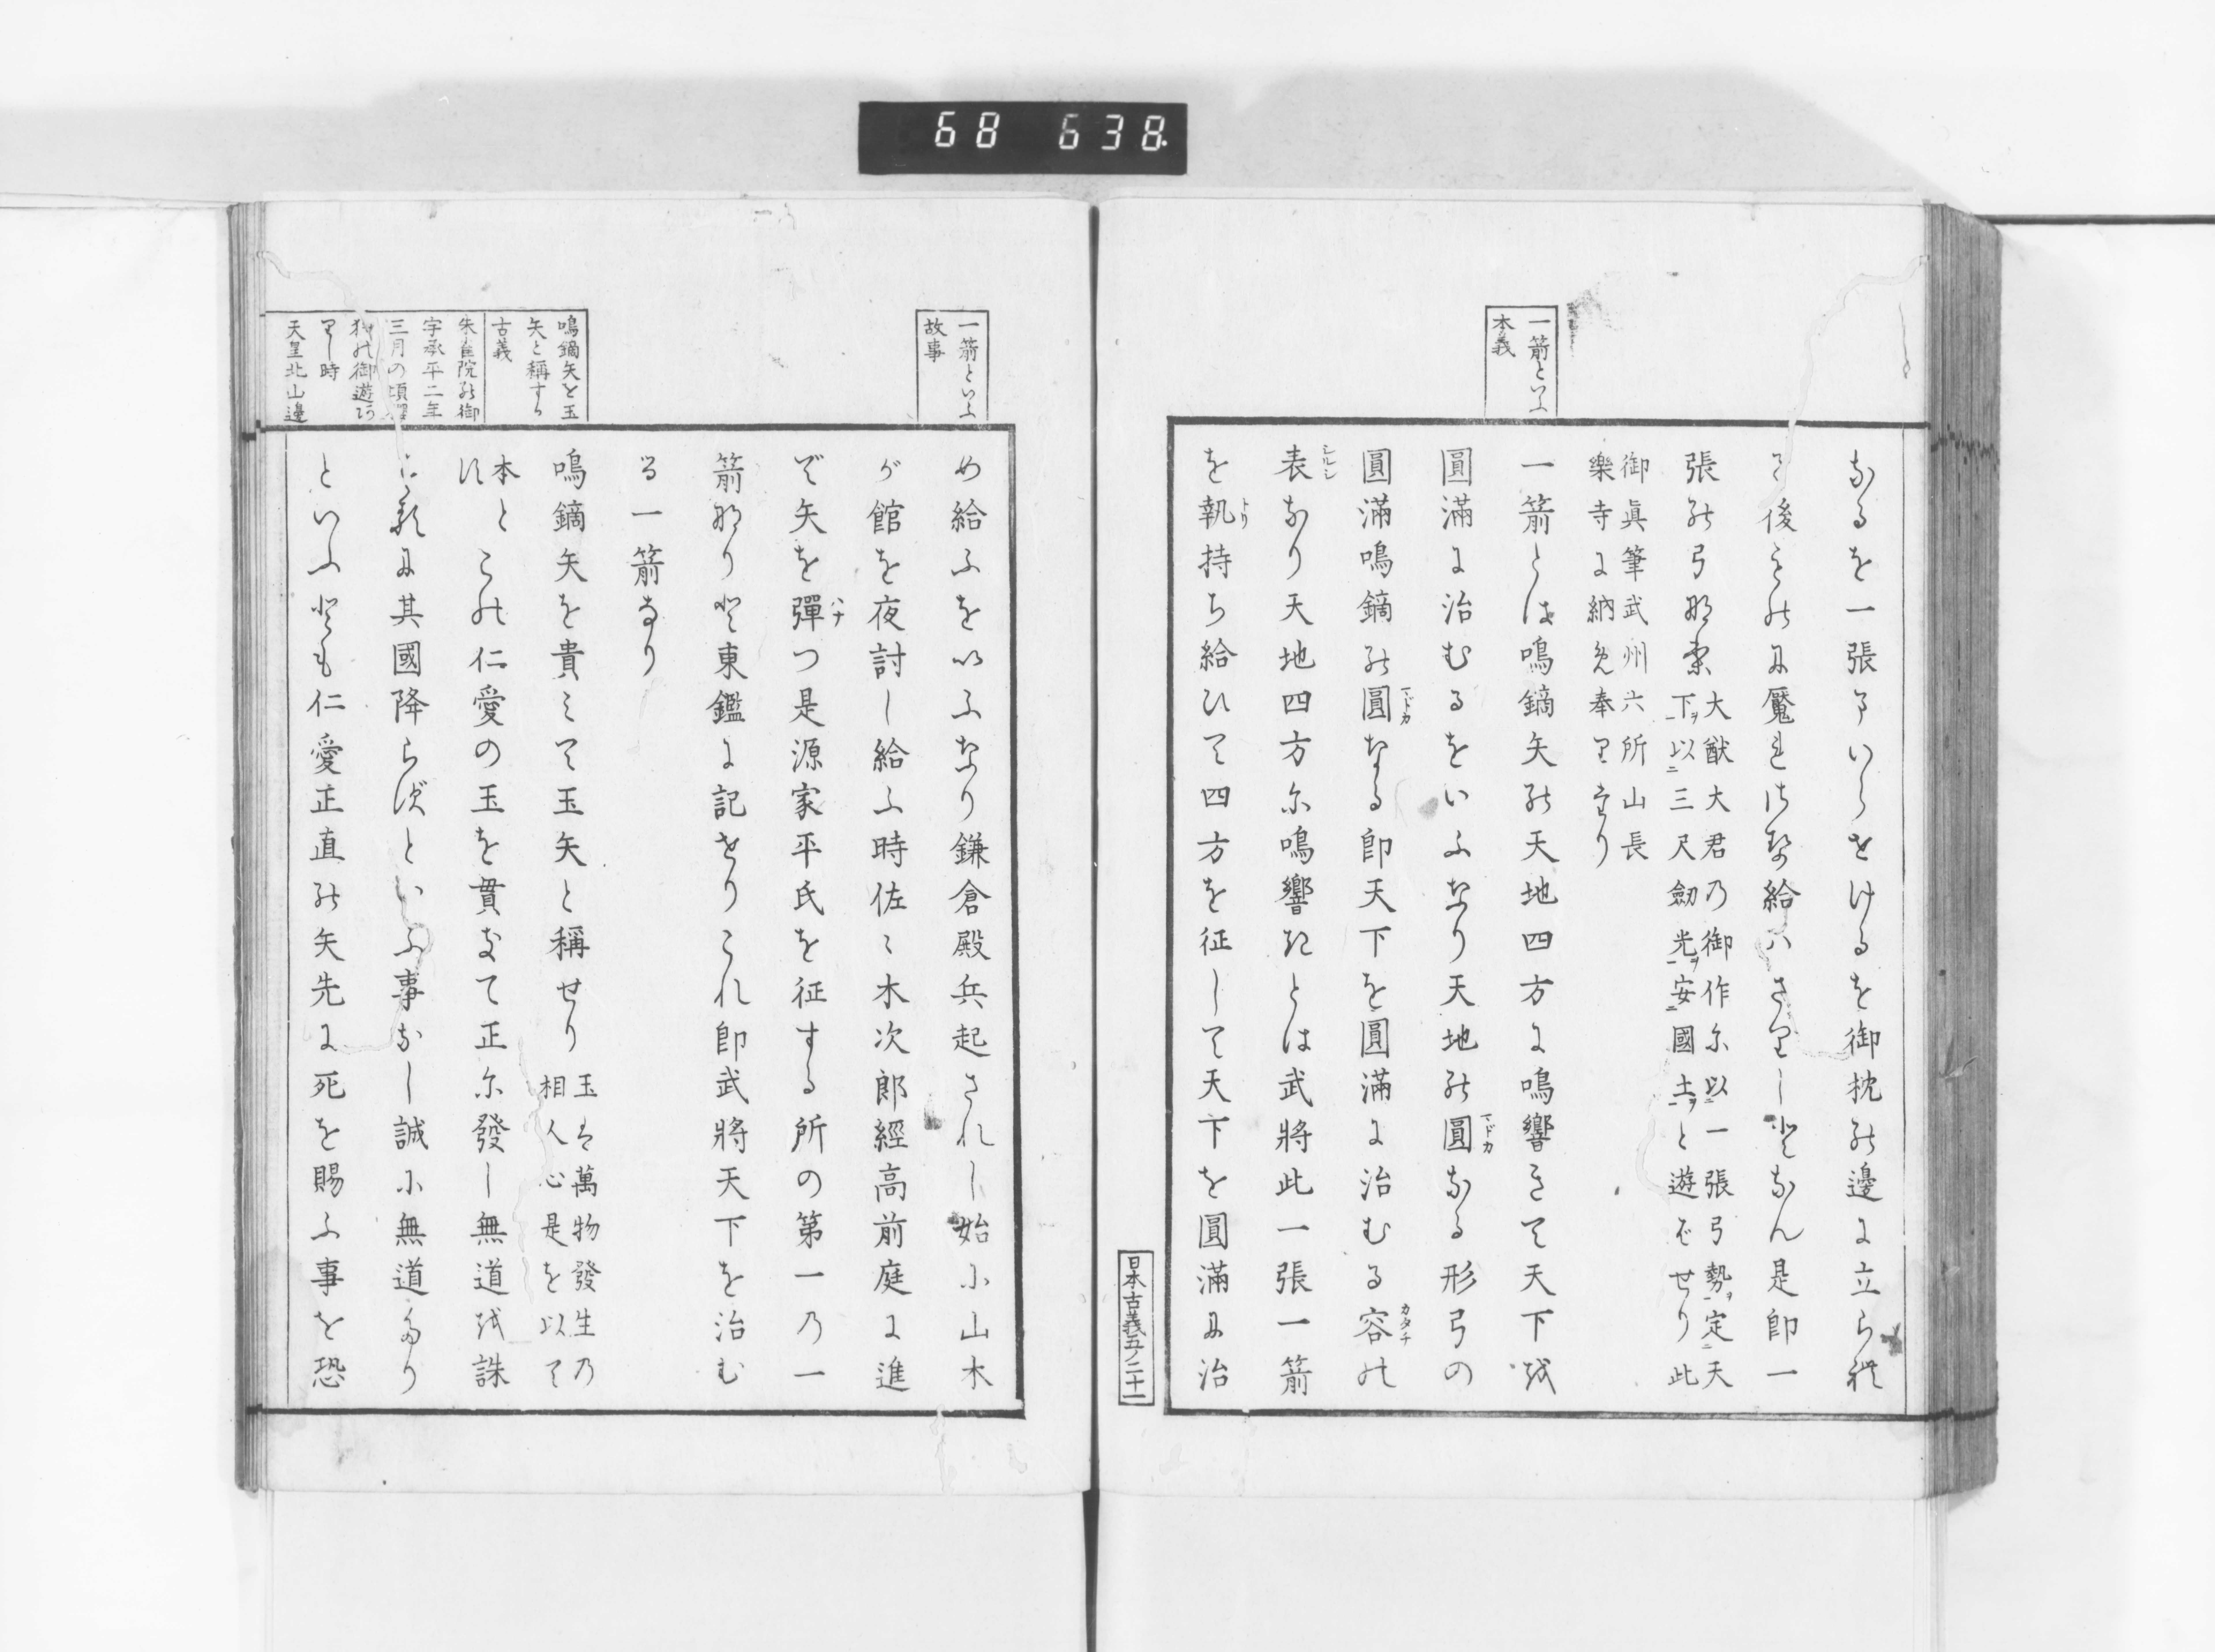 68 638
一箭といふ
本義
なるを一張まいらせけるを御枕能邊に立られ
て後その尓魘れ給ハさりしとなん是即一
張能弓那里
大猷大君乃御作尓以一張弓勢ヲ定天
下ヲ以三尺劔光ヲ安國土ヲと遊ばせり此
御眞筆武州六所山長
樂寺に納免奉りたり
一箭とは鳴鏑矢能天地四方に鳴響きて天下越
圓滿に治むるをいふなり天地能圓なる形弓の
圓滿鳴鏑能圓なる即天下を圓滿に治むる容能
表なり天地四方尓鳴響記とは武將此一張一箭
を執持ち給ひて四方を征して天下を圓滿尓治
日本古義五ノ二十一
一箭といふ
故事
め給ふをいふなり鎌倉殿兵起されし始小山木
が館を夜討し給ふ時佐〻木次郎經高前庭に進
で矢を彈つ是源家平氏を征する所の第一乃一
箭那りと東鑑に記せりこれ即武將天下を治む
る一箭なり
鳴鏑矢を玉
矢と稱する
古義
鳴鏑矢を貴みて玉矢と稱せり
玉は萬物發生乃
相人心是を以て
本とこ能仁愛の玉を貫きて正尓發し無道越誅
尓其國降らずといふ事なし誠尓無道なり
といふとも仁愛正直能矢先に死を賜ふ事を恐
朱雀院能御
宇承平二年
三月の頃
狩能御遊
りし時
天皇北山邊